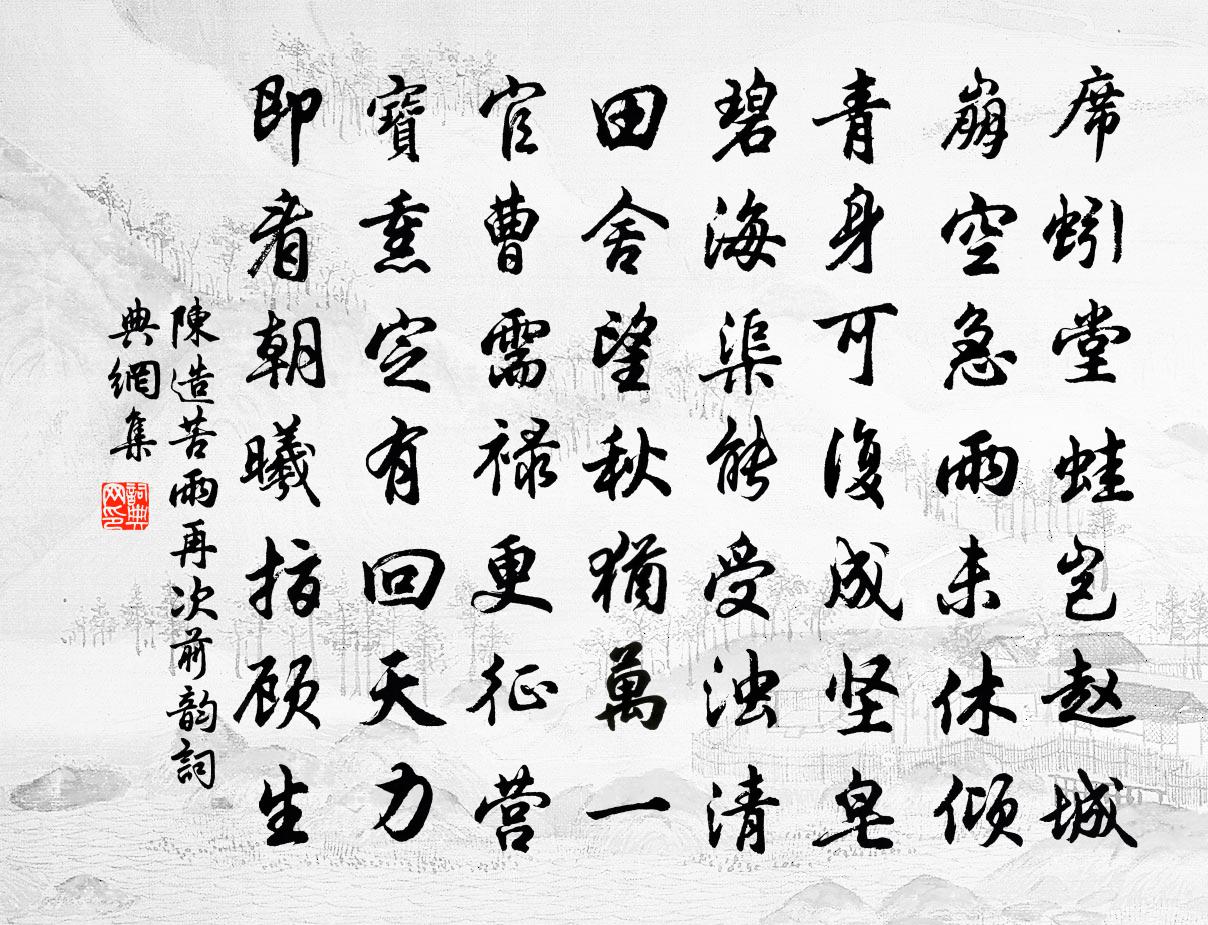 席蚓堂蛙岂赵城
崩空急雨未休倾
青身可復成坚皂
碧海渠能受浊清
田舍望秋猶萬一
官曹需禄更征营
寶熏定有回天力
即看朝曦指顾生
陳造苦雨再次前韵詞
典網集
詞典网印